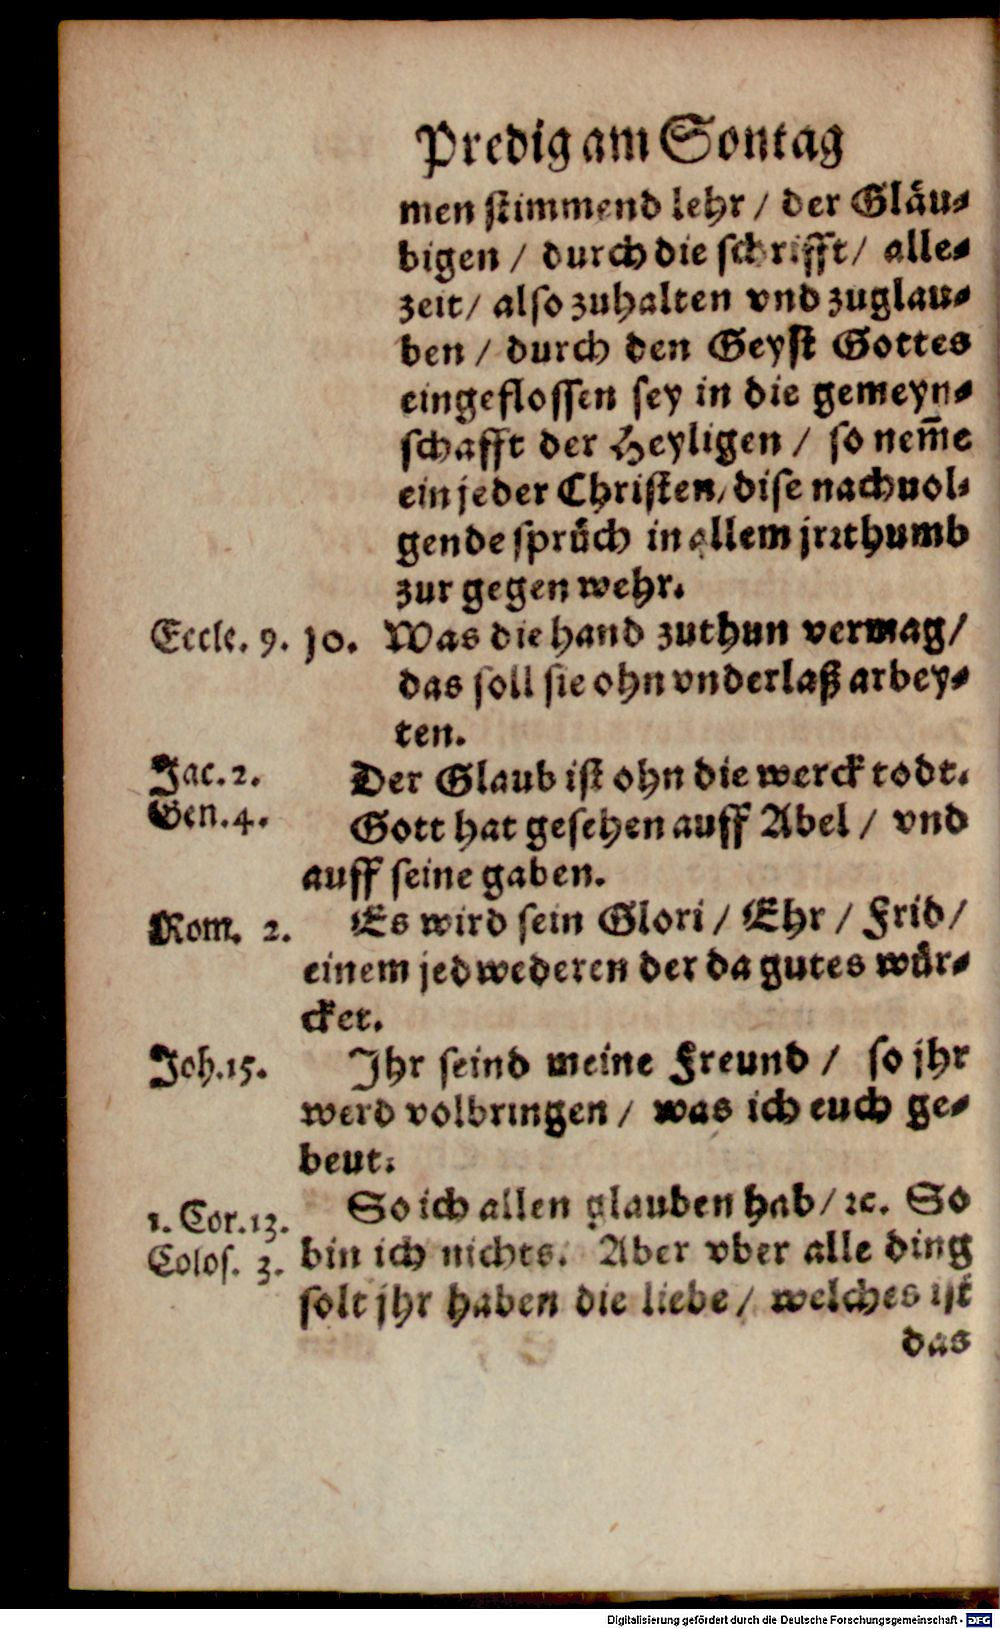 Predig am Sontag
men stimmend lehr / der Gläu-
bigen / durch die schrifft / alle-
zeit / also zuhalten vnd zuglau-
ben / durch den Geyst Gottes
eingeflossen sey in die gemeyn-
schafft der Heyligen / so nem̄e
ein jeder Christen / dise nachuol-
gende sprüch in allem jrrthumb
zur gegen wehr.
Eccle. 9. 10. Was die hand zuthun vermag /
das soll sie ohn vnderlaß arbey-
ten.
Jac. 2. Der Glaub ist ohn die werck todt.
Gen. 4. Gott hat gesehen auff Abel / vnd
auff seine gaben.
Rom. 2. Es wird sein Glori / Ehr / Frid /
einem jedwederen der da gutes wür-
cket.
Joh. 15. Jhr seind meine Freund / so jhr
werd volbringen / was ich euch ge-
beut.
1. Cor. 13. So ich allen glauben hab / ꝛc. So
Colos. 3. bin ich nichts. Aber vber alle ding
solt jhr haben die liebe / welches ist
das
Digitalisierung gefördert durch die Deutsche Forschungsgemeinschaft - DFG